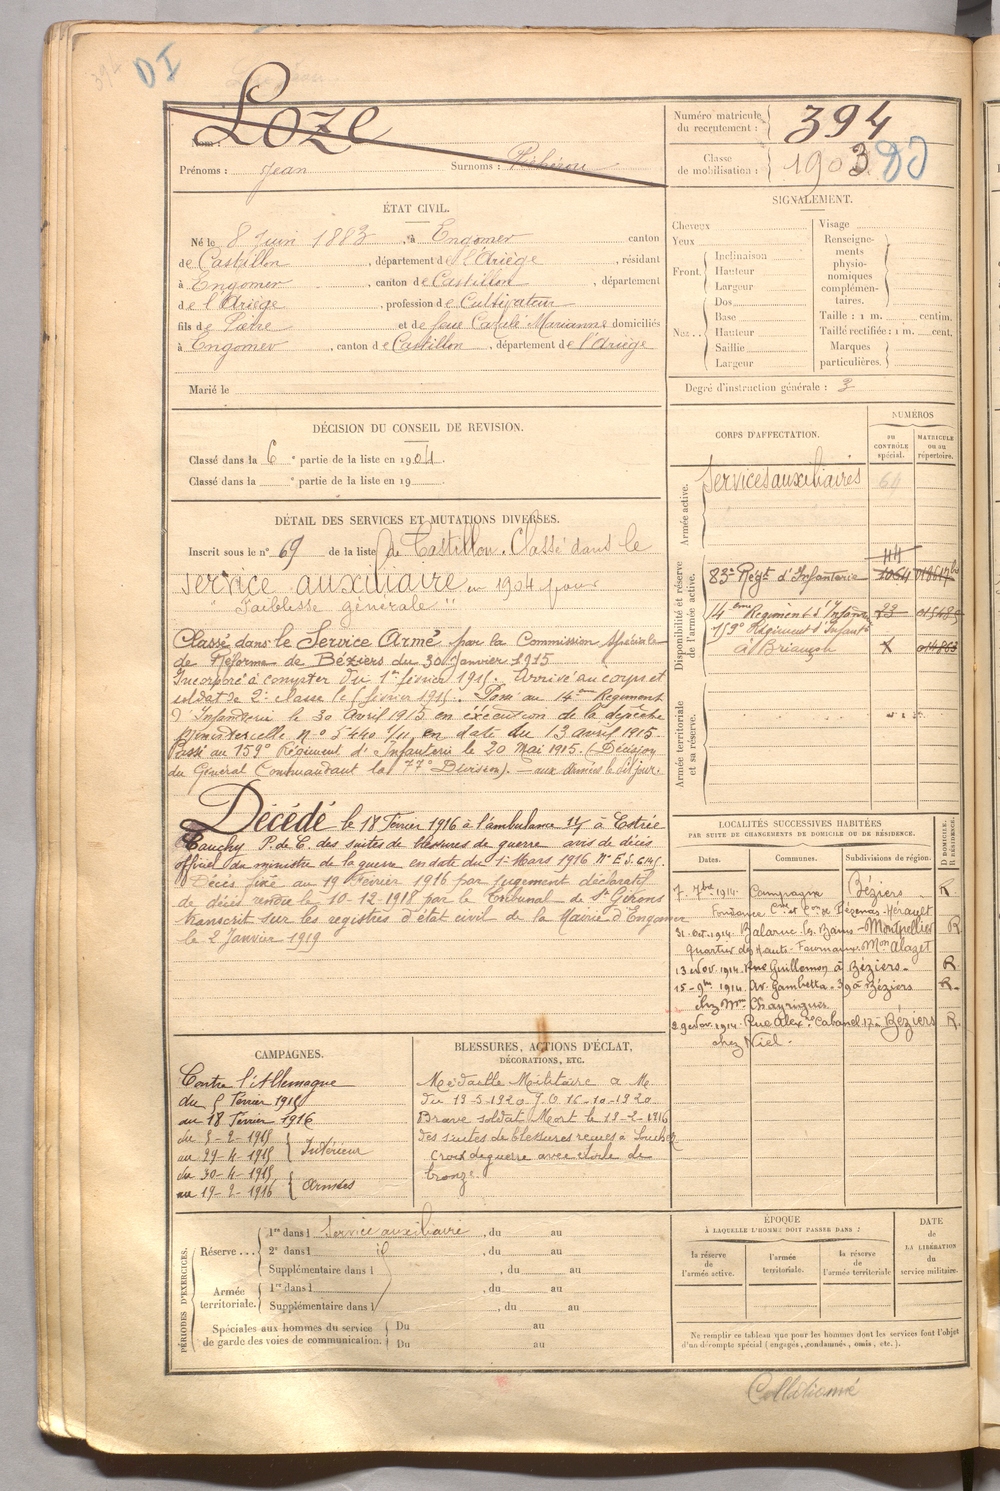 394
DI
Loze
Nom :
Prénoms : Jean Surnoms :
Numéro matricule du recrutement : 394
Classe de mobilisation : 1903
ÉTAT CIVIL.
Né le 8 Juin 1883, à Engomer canton
de Castillon, département de l'Ariège, résidant
à Engomer, canton de Castillon, département
de l'Ariège, profession de Cultivateur
fils de Pierre et de feue Cazalé Marianne domiciliés
à Engomer, canton de Castillon, département de l'Ariège
Marié le
SIGNALEMENT.
Cheveux
Yeux
Front. Inclinaison
Hauteur
Largeur
Nez.. Dos
Base
Hauteur
Saillie
Largeur
Visage
Renseignements physionomiques complémentaires.
Taille : 1 m. centim.
Taille rectifiée : 1 m. cent.
Marques particulières.
Degré d'instruction générale : 3
DÉCISION DU CONSEIL DE REVISION.
Classé dans la 6e partie de la liste en 1904.
Classé dans la e partie de la liste en 19
DÉTAIL DES SERVICES ET MUTATIONS DIVERSES.
Inscrit sous le no 69 de la liste de Castillon. Classé dans le
service auxiliaire en 1904 pour
"Faiblesse générale"
Classé dans le Service Armé par la Commission spéciale
de Réforme de Béziers du 30 Janvier 1915
Incorporé à compter du 1er février 1915. Arrivé au corps et
soldat de 2e classe le 5 février 1915. Passé au 14eme Régiment
d'Infanterie le 30 Avril 1915 en exécution de la dépêche
Ministérielle No 5440 1/11 en date du 13 avril 1915.
Passé au 159e Régiment d'Infanterie le 20 Mai 1915. (Décision
du Général Commandant la 77e Division). - aux Armées le dit jour.
Décédé le 18 Février 1916 à l'ambulance à Estrée
Cauchy P. de C. des suites de blessures de guerre avis de décès
officiel du ministre de la guerre en date du 1er Mars 1916
Décès fixé au 19 Février 1916 par jugement déclaratif
de décès rendu le 10-12-1918 par le Tribunal de St Girons
transcrit sur les registres d'état civil de la Mairie d'Engomer
le 2 Janvier 1919
CORPS D'AFFECTATION.
NUMÉROS
au CONTRÔLE spécial.
MATRICULE ou au répertoire.
Armée active.
Services auxiliaires 64
Disponibilité et réserve de l'armée active.
44
83e Régt d'Infanterie 1064
14eme Régiment d'Infanterie 23
159e Régiment d'Infant
à Briançon X
Armée territoriale et sa réserve.
LOCALITÉS SUCCESSIVES HABITÉES
PAR SUITE DE CHANGEMENTS DE DOMICILE OU DE RÉSIDENCE.
Dates. Communes. Subdivisions de région. D DOMICILE. R RÉSIDENCE.
7 7bre 1914 Campagne Béziers R.
de Pézenas - Hérault
31 oct. 1914 Balaruc les Bains - Montpellier R
Quartier des Hauts-Fourneaux Mon Alazet
13 Nov. 1914 Rue Guillemon à Béziers - R.
15 - 9bre 1914 Av. Gambetta - 39 à Béziers R.
chez Mme
29 Nov. 1914 Rue Alexre Cabanel 17 - Béziers R.
chez Niel.
CAMPAGNES.
Contre l'Allemagne
du 5 Février 1915
au 18 Février 1916
du 5-2-1915
au 29-4-1915 Intérieur
du 30-4-1915
au 19-2-1916 Armées
BLESSURES, ACTIONS D'ÉCLAT,
DÉCORATIONS, ETC.
Médaille Militaire a M.
du 19-5-1920 J.O. 16-10-1920
Brave soldat Mort le 19-2-1916
des suites de blessures reçues à Souchez
Croix de guerre avec étoile de
bronze.
PÉRIODES D'EXERCICES.
Réserve... 1re dans l Service auxiliaire, du au
2e dans l id, du au
Supplémentaire dans l, du au
Armée territoriale. 1re dans l, du au
Supplémentaire dans l, du au
Spéciales aux hommes du service de garde des voies de communication. Du au
Du au
ÉPOQUE
À LAQUELLE L'HOMME DOIT PASSER DANS :
la réserve de l'armée active.
l'armée territoriale.
la réserve de l'armée territoriale
DATE de LA LIBÉRATION du service militaire.
Ne remplir ce tableau que pour les hommes dont les services font l'objet
d'un décompte spécial (engagés, condamnés, omis, etc.).
Collationné